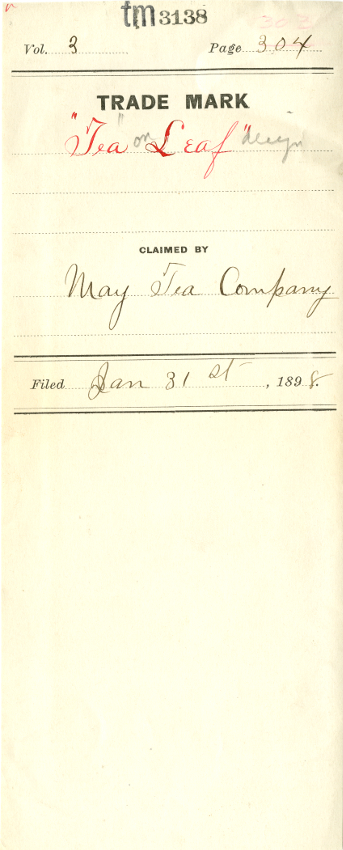 tm3138
303
Vol. 3 Page 304
TRADE MARK
"Tea" on Leaf" design
CLAIMED BY
May Tea Company
Filed Jan 31st, 1898.